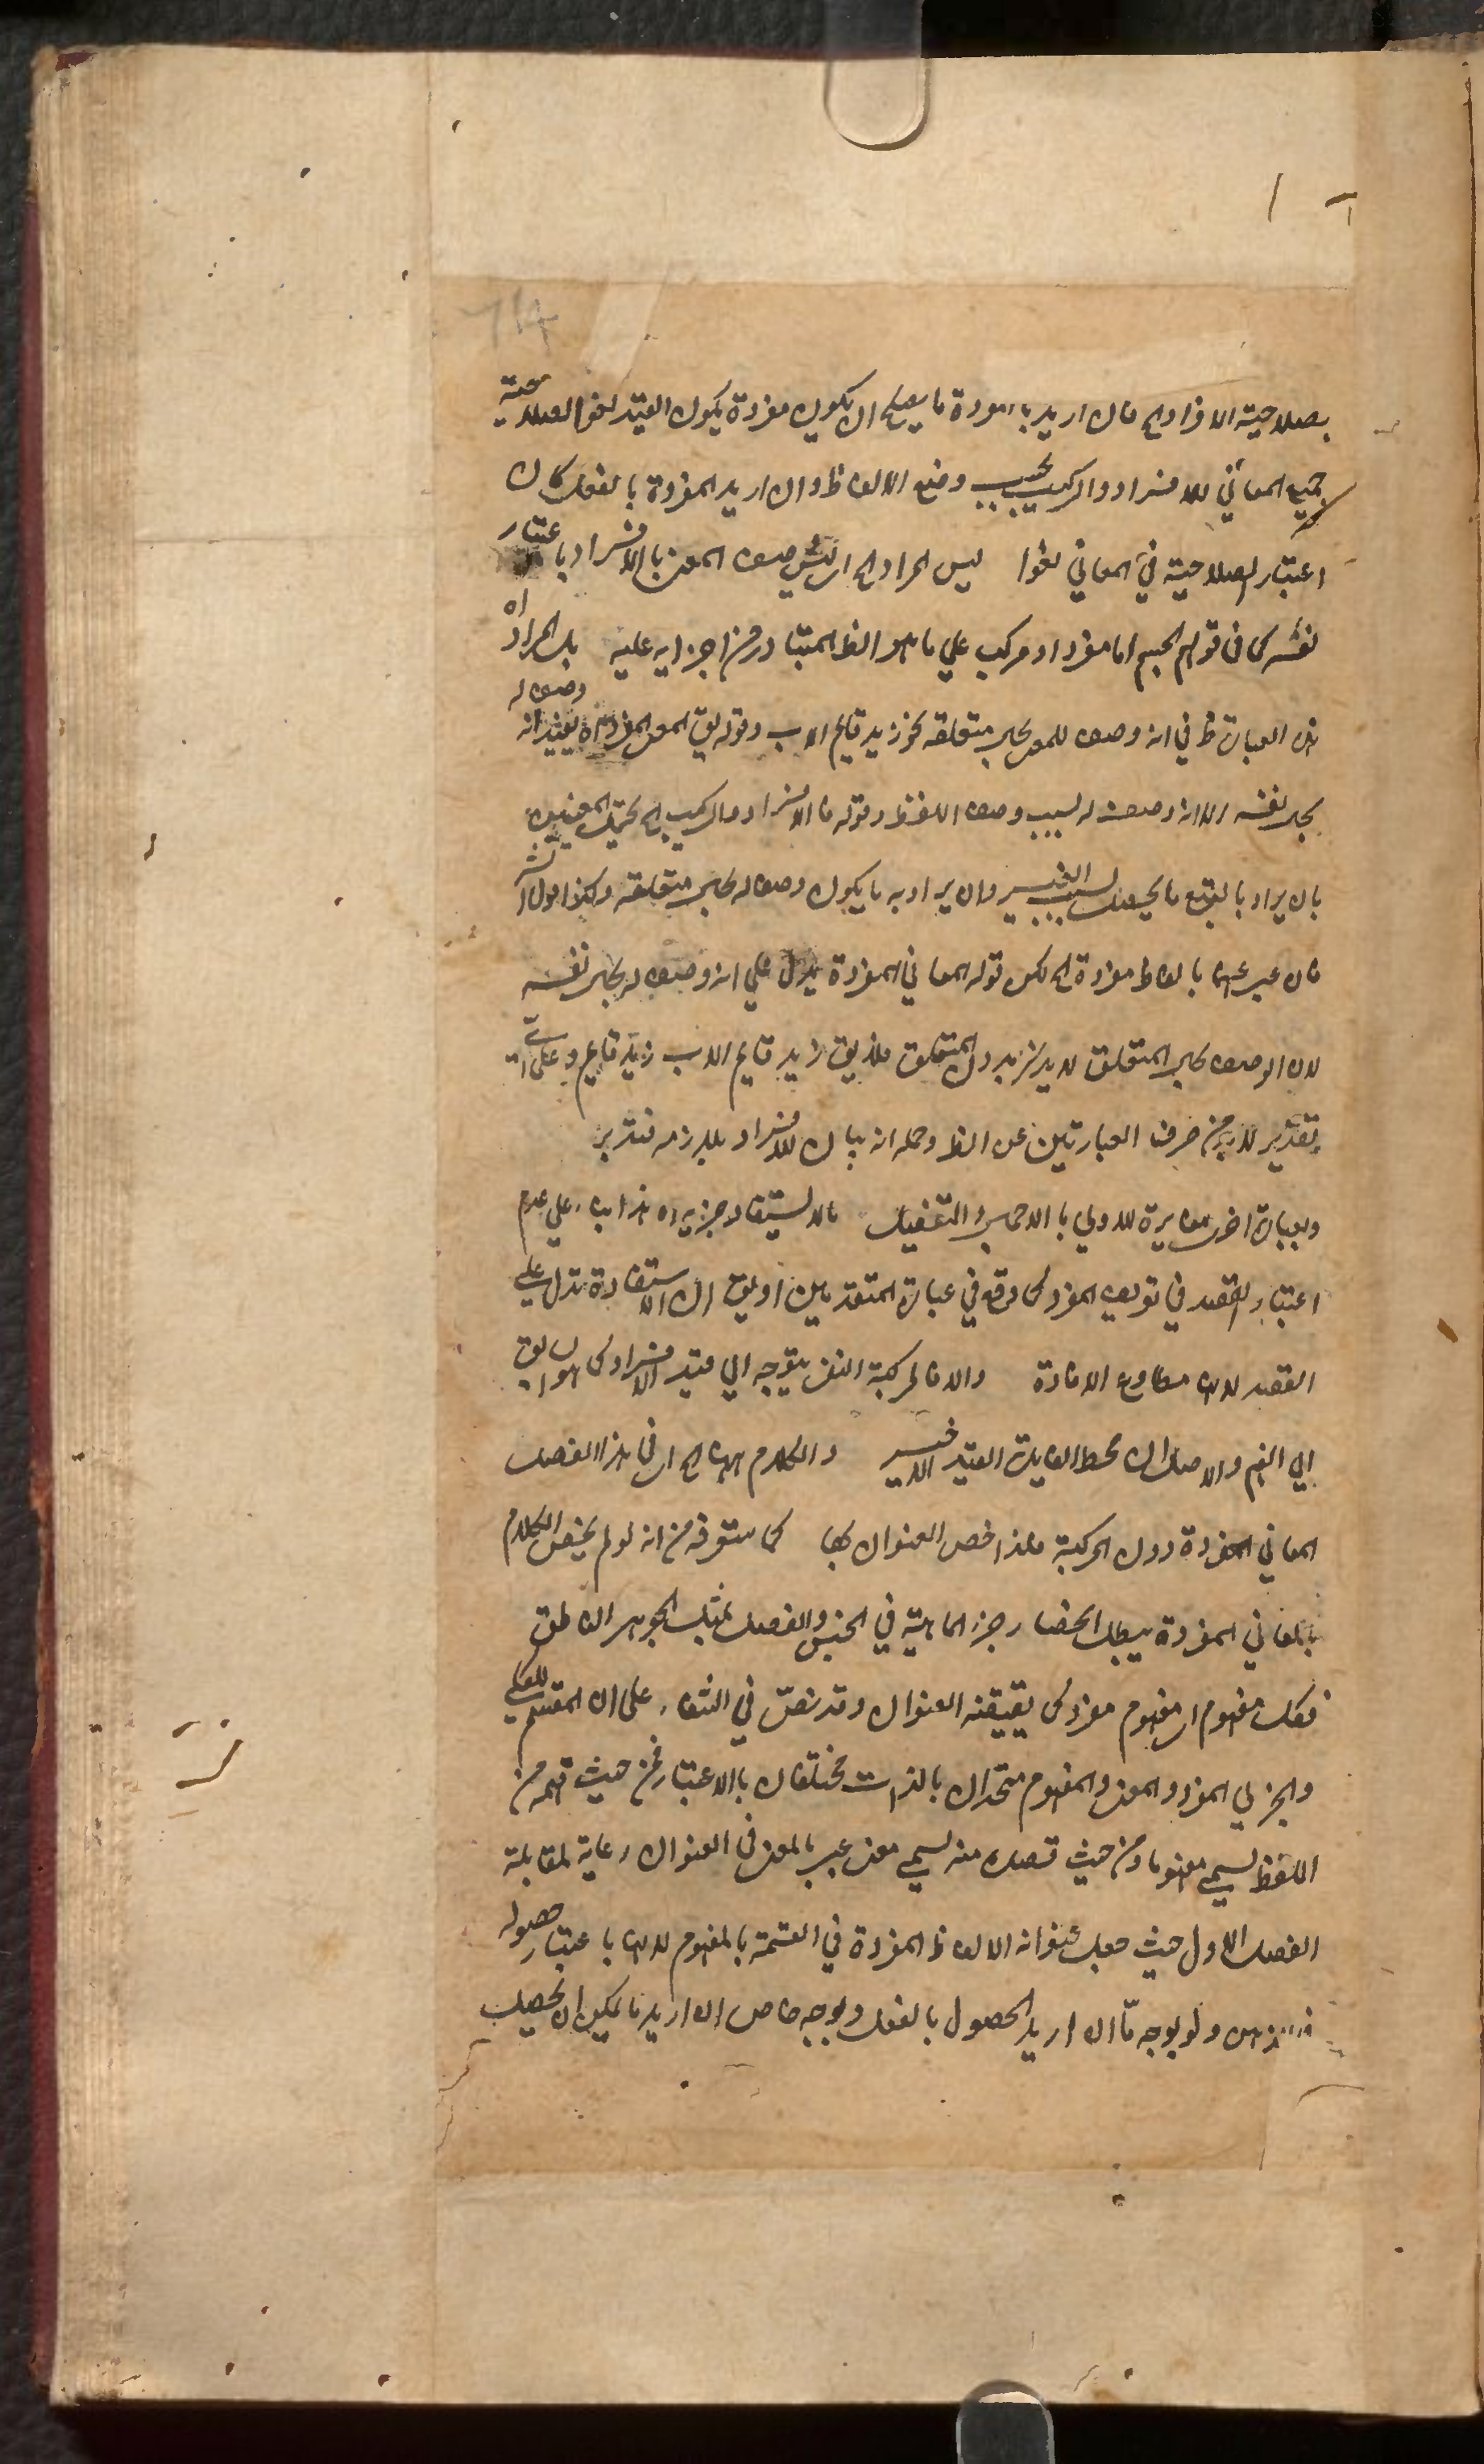 بصلاحية الافراد الخ فان اريد بالمفردة ما يصلح ان يكون مفردة يكون القيد لغوا لصلاحية
جميع المعاني للافراد والتركيب بحسب وضع الالفاظ وان اريد المفردة بالفعل كان
اعتبار الصلاحية في المعاني لغوا ليس المراد الخ اى ليس وصف المعنى بالافراد باعتبار
نفسه كما فى قولهم الجسم اما مفرد او مركب علي ما هو الظ المتبادر من اجرايه عليه بل المراد اه
هذه العبارة ظ في انه وصف للمعنى بحال متعلقه نحو زيد قايم الاب وقوله يق المعنى المفرد اه يفيد انه وصف له
بحال نفسه الا انه وصف له بسبب وصف اللفظ وقوله فالافراد والتركيب الخ يحتمل المعنيين
بان يراد بالتبع ما يحصل بسبب الغير وان يراد به ما يكون وصفا له بحال متعلقه وكذا قول الش
فان عبر عنها بالفاظ مفردة الخ لكن قوله المعاني المفردة يدل علي انه وصف له بحال نفسه
لان الوصف بحال المتعلق لا يذكر بدون المتعلق فلا يق زيد قايم الاب زيد قايم وعلى اي
تقدير لا بد من صرف العبارتين عن الظ وحمله انه بيان للافراد بلازمه فتدبر
وبعبارة اخرى مغايرة للاولي بالاجمال والتفصيل ما لا يستفاد جزءه اه هذا بناء علي عدم
اعتبار القصد في تعريف المفرد كما وقع في عبارة المتقدمين او يق ان الاستفادة تدل علي
القصد لانها مطاوع الافادة والا فالمركبة النفى يتوجه الي قيد الافراد كما هو السابق
الي الفهم والاصل ان محط الفايدة القيد الاخير والكلام ههنا الخ اى فى هذا الفصل
المعاني المفردة دون المركبة فلذا خص العنوان بها كما ستعرفه من انه لو لم يخص الكلام
بالمعاني المفردة يبطل انحصار جزء الماهية في الجنس والفصل بمثل الجوهر الناطق
فكل مفهوم اى مفهوم مفرد كما يقتضيه العنوان وقد نص في الشفاء على ان المقسم للكلي
والجزئي المفرد والمعنى والمفهوم متحدان بالذات مختلفان بالاعتبار فمن حيث فهمه من
اللفظ يسمي مفهوما ومن حيث قصده منه يسمي معنى عبر بالمعنى فى العنوان رعاية لمقابلة
الفصل الاول حيث جعل عنوانه الالفاظ المفردة في القسمة بالمفهوم لانها باعتبار حصوله
فى الذهن ولو بوجه مّا ان اريد الحصول بالفعل وبوجه خاص ان اريد ما يمكن ان يحصل